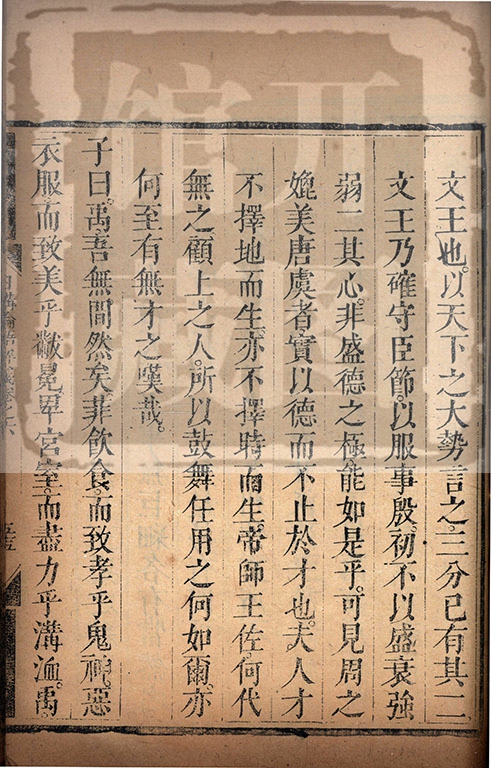 文王也。以天下之大勢言之。三分已有其二。
文王乃確守臣節。以服事殷。初不以盛衰強
弱二其心。非盛德之極能如是乎。可見周之
媲美唐虞者實以德而不止於才也。夫人才
不擇地而生。亦不擇時而生。帝師王佐何代
無之顧上之人。所以鼓舞任用之何如爾。亦
何至有無才之嘆哉。
子曰。禹吾無間然矣菲飲食。而致孝乎鬼神。惡
衣服而致美乎黻冕卑宮室。而盡力乎溝洫。禹。
日講論語解義卷之六
五五